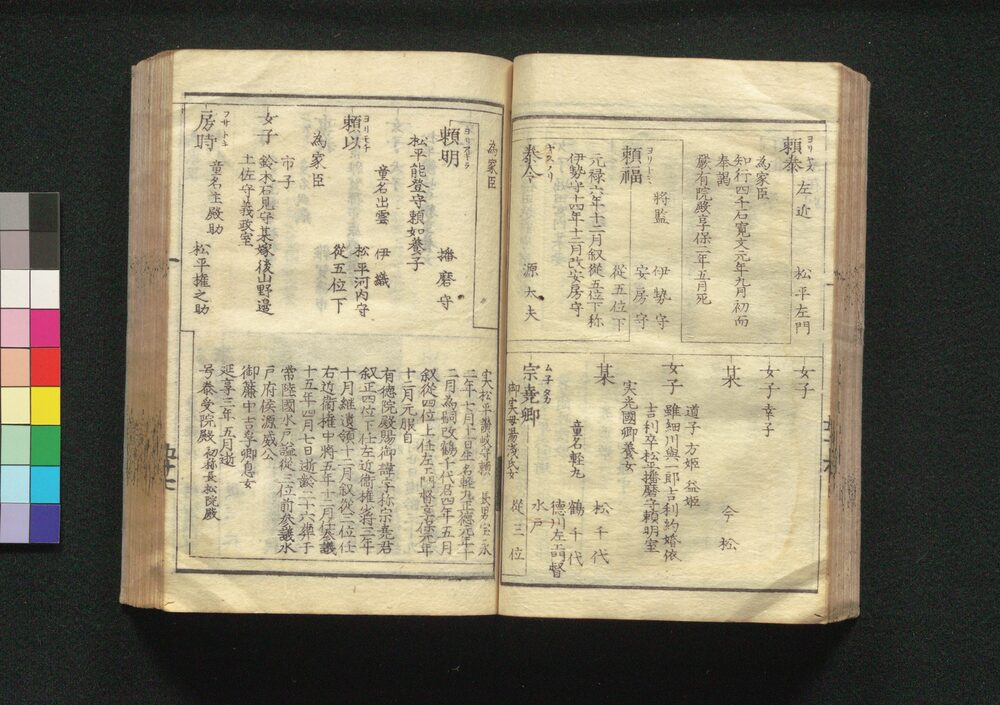 ヨリヤス
頼泰 左近 松平左門
為家臣
知行四千石寛文元年九月初而
奉謁
嚴有院殿享保二年五月死
ヨリトミ
頼福 將監 伊勢守
安房守
從五位下
元禄六年十二月叙從五位下称
伊勢守十四年十二月改安房守
ヤスノリ
泰令 源太夫
女子
女子 幸子
某 今松
女子 道子 方姫 益姫
雖細川與一郎吉利約婚依
吉利卒松平播磨守頼明室
実光國卿養女
某 童名軽丸 松千代
鶴千代
徳川左衛門督
水戸
ムネタカ
宗堯卿 從三位
御実母湯浅氏女
為家臣
ヨリアキラ
頼明 播磨守
松平能登守頼如養子
童名出雲 伊織
ヨリモチ
頼以 松平河内守
從五位下
為家臣
女子 市子
鈴木石見守某嫁後山野邊
土佐守義政室
フサトキ
房時 童名主殿助 松平權之助
実松平讃岐守頼 長男宝永
二年七月十一日生名軽丸正徳元年十
二月為嗣改鶴千代君四年五月
叙從四位上任左衛門督享保元年
十二月元服自
有徳院殿賜御諱字称宗堯君
叙正四位下任左近衛權少將三年
十月継遺領十二月叙從三位任
右近衛權中將五年十二月任參議
十五年四月七日逝齢二十六葬于
常陸國水戸謚從三位前參議水
戸府侯源成公
御簾中吉孚卿息女
延享三年五月逝
号泰受院殿 初称長松院殿